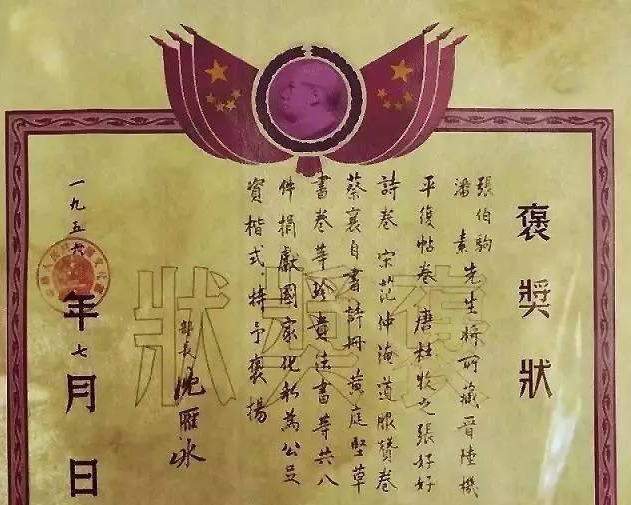 褒獎狀
張伯駒
潘素先生將所藏晉陸機
平復帖卷唐杜牧之張好好
詩卷宋范仲淹道服贊卷
蔡襄自書詩冊黃庭堅草
書卷等珍貴法書等共八
件捐獻國家化私為公足
資楷式，特予褒揚
部長沈雁冰
一九五六年七月日
褒獎狀